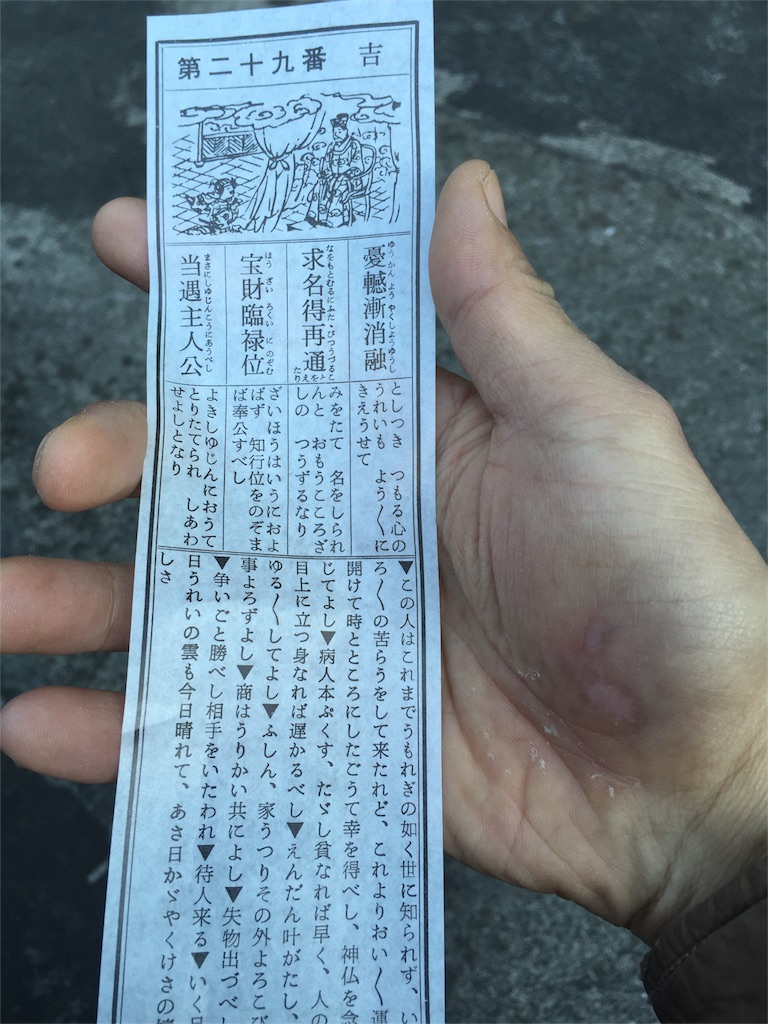 第二十九番 吉
ゆうかんようやくしようゆうし
憂轗漸消融
なをもとむるにふたゝびつうづることをえたり
求名得再通
ほうざいろくいにのぞむ
宝財臨禄位
まさにしゆじんこうにあうべし
当遇主人公
としつき つもる心の
うれいも よう〳〵に
きえうせて
みをたて 名をしられ
んと おもうこころざ
しの つうずるなり
ざいほうはいうにおよ
ばず 知行位をのぞま
ば奉公すべし
よきしゆじんにおうて
とりたてられ しあわ
せよしとなり
▼この人はこれまでうもれぎの如く世に知られず、い
ろ〳〵の苦らうをして来たれど、これよりおい〳〵運
開けて時とところにしたごうて幸を得べし、神仏を念
じてよし▼病人本ぷくす、たゞし貧なれば早く、人の
目上に立つ身なれば遅かるべし▼えんだん叶がたし、
ゆる〳〵してよし▼ふしん、家うつりその外よろこび
事よろずよし▼商はうりかい共によし▼失物出づべし
▼争いごと勝べし相手をいたわれ▼待人来る▼いく
日うれいの雲も今日晴れて、あさ日かゞやくけさの
しさ